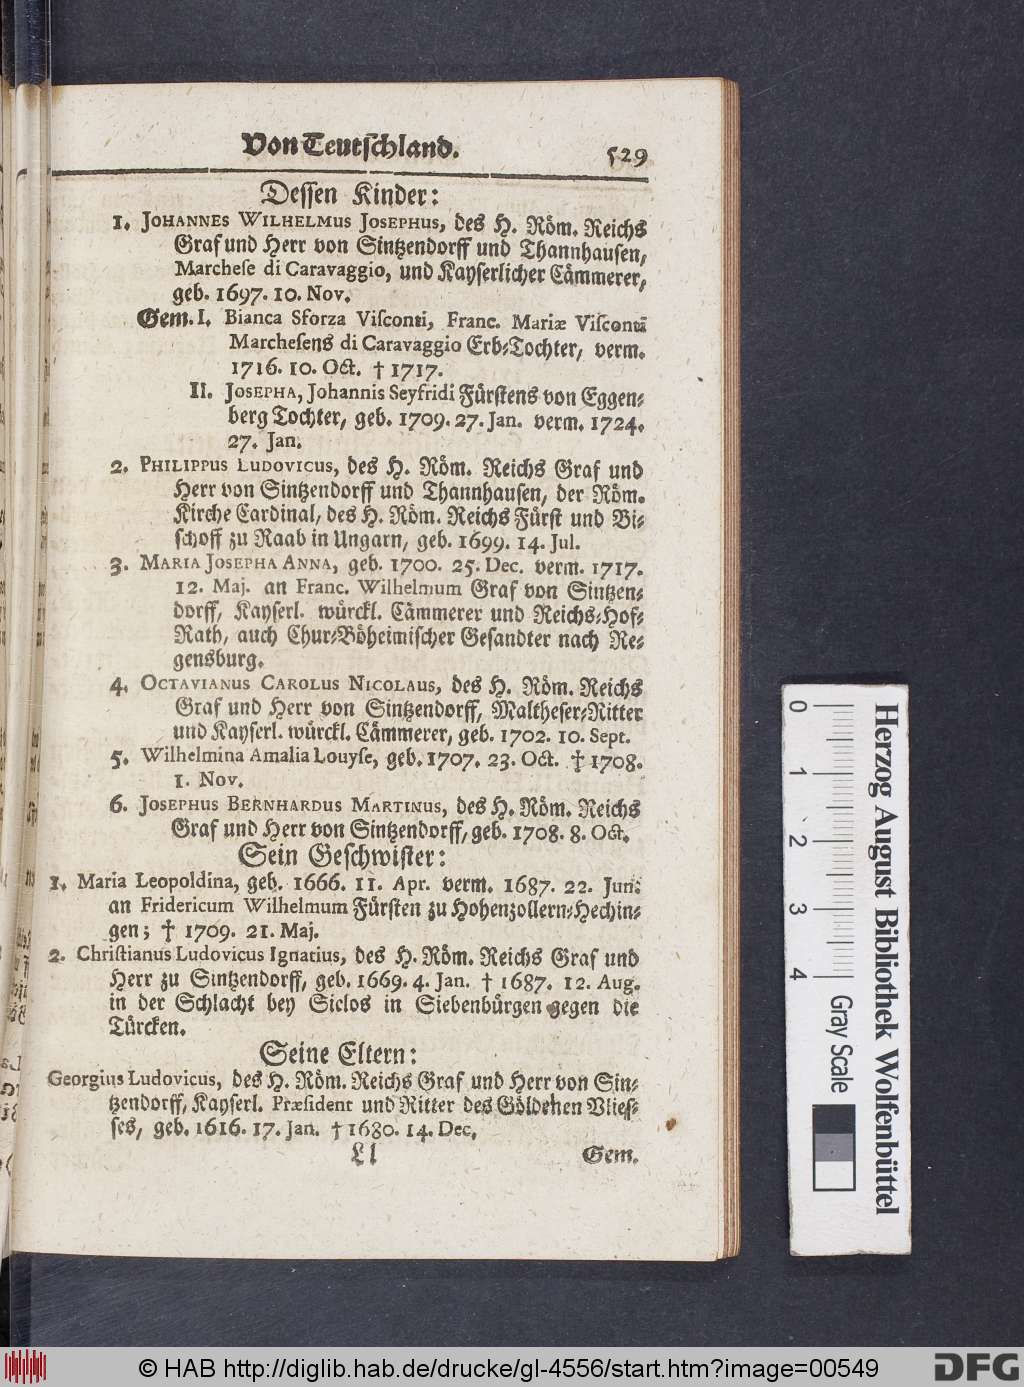 Von Teutschland. 529
Dessen Kinder:
1. JOHANNES WILHELMUS JOSEPHUS, des H. Röm. Reichs
Graf und Herr von Sintzendorff und Thannhausen,
Marchese di Caravaggio, und Kayserlicher Cämmerer,
geb. 1697. 10. Nov.
Gem. I. Bianca Sforza Visconti, Franc. Mariæ Visconti
Marchesens di Caravaggio Erb-Tochter, verm.
1716. 10. Oct. † 1717.
II. JOSEPHA, Johannis Seyfridi Fürstens von Eggen-
berg Tochter, geb. 1709. 27. Jan. verm. 1724.
27. Jan.
2. PHILIPPUS LUDOVICUS, des H. Röm. Reichs Graf und
Herr von Sintzendorff und Thannhausen, der Röm.
Kirche Cardinal, des H. Röm. Reichs Fürst und Bi-
schoff zu Raab in Ungarn, geb. 1699. 14. Jul.
3. MARIA JOSEPHA ANNA, geb. 1700. 25. Dec. verm. 1717.
12. Maj. an Franc. Wilhelmum Graf von Sintzen-
dorff, Kayserl. würckl. Cämmerer und Reichs-Hof-
Rath, auch Chur-Böheimischer Gesandter nach Re-
gensburg.
4. OCTAVIANUS CAROLUS NICOLAUS, des H. Röm. Reichs
Graf und Herr von Sintzendorff, Maltheser-Ritter
und Kayserl. würckl. Cämmerer, geb. 1702. 10. Sept.
5. Wilhelmina Amalia Louyse, geb. 1707. 23. Oct. † 1708.
1. Nov.
6. JOSEPHUS BERNHARDUS MARTINUS, des H. Röm. Reichs
Graf und Herr von Sintzendorff, geb. 1708. 8. Oct.
Sein Geschwister:
1. Maria Leopoldina, geb. 1666. 11. Apr. verm. 1687. 22. Jun.
an Fridericum Wilhelmum Fürsten zu Hohenzollern-Hechin-
gen; † 1709. 21. Maj.
2. Christianus Ludovicus Ignatius, des H. Röm. Reichs Graf und
Herr zu Sintzendorff, geb. 1669. 4. Jan. † 1687. 12. Aug.
in der Schlacht bey Siclos in Siebenbürgen gegen die
Türcken.
Seine Eltern:
Georgius Ludovicus, des H. Röm. Reichs Graf und Herr von Sin-
tzendorff, Kayserl. Præsident und Ritter des Göldenen Vlies-
ses, geb. 1616. 17. Jan. † 1680. 14. Dec.
Ll Gem.
0 1 2 3 4
Gray Scale
Herzog August Bibliothek Wolfenbüttel
© HAB http://diglib.hab.de/drucke/gl-4556/start.htm?image=00549
DFG